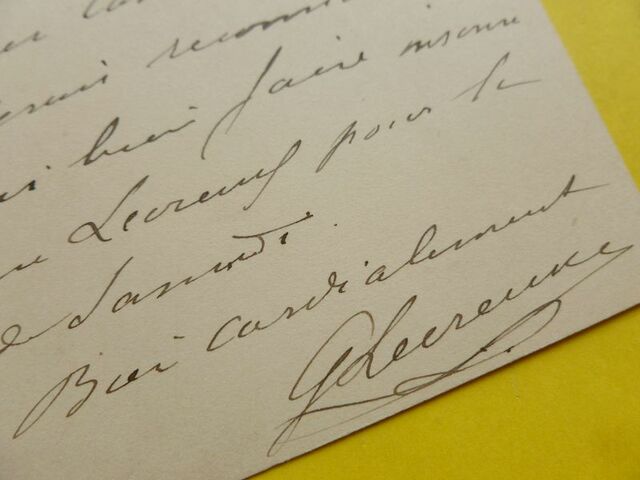 reconn
bien faire inscrire
Lecreux pour le
de Samedi.
Bien cordialement
G Lecreux